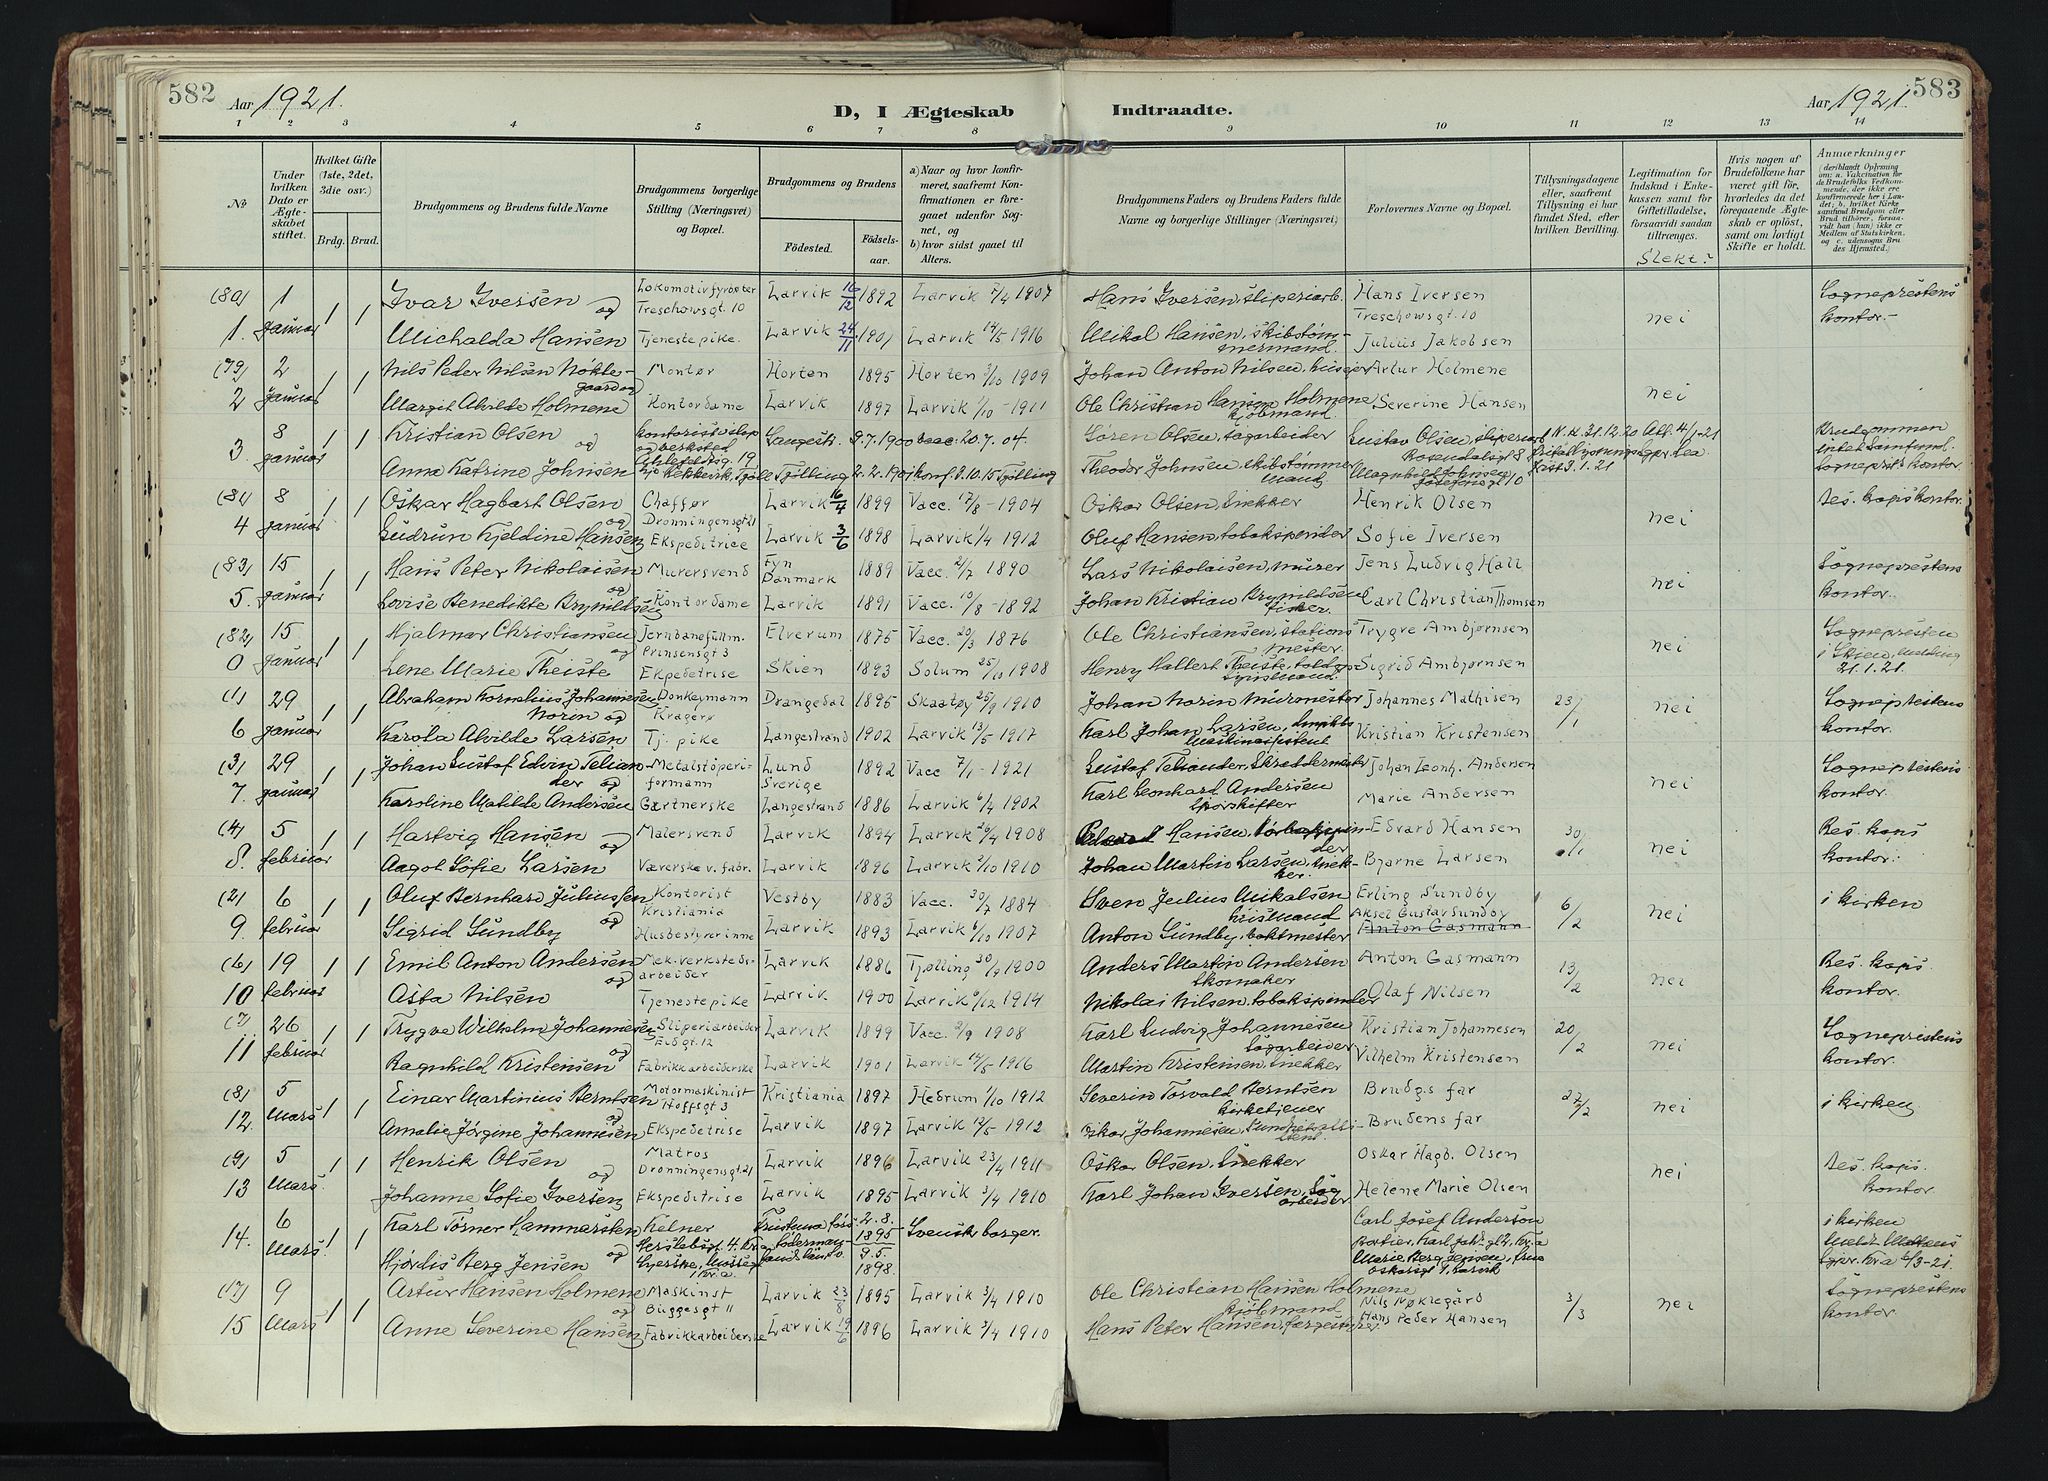 582
Aar 1921.
D, I Ægteskab
Indtraadte.
Aar 1921.
583
1 2 3 4 5 6 7 8 9 10 11 12 13 14
No
Under hvilken Dato er Ægteskabet stiftet.
Hvilket Gifte (1ste, 2det, 3die osv.)
Brdg. Brud.
Brudgommens og Brudens fulde Navne
Brudgommens borgerlige Stilling (Næringsvei) og Bopæl.
Brudgommens og Brudens
Födested.
Födselsaar.
a) Naar og hvor konfirmeret, saafremt Konfirmationen er foregaaet udenfor Sognet, og
b) hvor sidst gaaet til Alters.
Brudgommens Faders og Brudens Faders fulde Navne og borgerlige Stillinger (Næringsvei)
Forlovernes Navne og Bopæl.
Tillysningsdagene eller, saafremt Tillysning ei har fundet Sted, efter hvilken Bevilling.
Legitimation for Indskud i Enkekassen samt for Giftetilladelse, forsaavidt saadan tiltrænges.
Slekt?
Hvis nogen af Brudefolkene har været gift för, hvorledes da det foregaaende Ægteskab er oplöst, samt om lovligt Skifte er holdt.
Anmærkninger
(80) 1 1 1 Ivar Iversen og Lokomotivfyrbøter Treschowsgt. 10 Larvik 16/12 1892 Larvik 7/4 1907 Hans Iversen, sliperiarb. Hans Iversen Treschowsgt. 10 nei Sogneprestens kontor.-
1. januar Michalda Hansen Tjenestepike. Larvik 24/11 1901 Larvik 14/5 1916 Mikal Hansen, skibstømmermand. Julius Jakobsen
(79) 2 1 1 Nils Peder Nilsen Nøklegaard og Montør Horten 1895 Horten 3/10 1909 Johan Anton Nilsen, Artur Holmene nei
2 januar Margit Alvilde Holmene Kontordame Larvik 1897 Larvik 1/10 - 1911 Ole Christian Hansen Holmene kjøbmand. Severine Hansen
3 8 januar 1 1 Kristian Olsen og kontorist Langestr. 9.7.1900 Vacc. 20.7.04. Søren Olsen, sagarbeider Gustav Olsen, Rosendalsgt 8 Brudgommen intet Samfund.
Anna Katrine Johnsen Tjølling 2.2.1901 konf. 3.10.15 Tjølling Theodor Johnsen, skibstømmermand
(84) 8 1 1 Oskar Hagbart Olsen og Chaffør Dronningensgt 21 Larvik 16/4 1899 Vacc. 17/8 - 1904 Oskar Olsen, snekker Henrik Olsen nei Res. kaps kontor.
4 januar Gudrun Kjeldine Hansen Ekspeditrice Larvik 3/6 1898 Larvik 1/4 1912 Oluf Hansen, tobakspinder Sofie Iversen
(83) 15 1 1 Hans Peter Nikolaisen og Murersvend Fyn Danmark 1889 Vacc. 2/7 1890 Lars Nikolaisen, murer Jens Ludvig Hall nei Sogneprestens kontor.
5. januar Lovise Benedikte Brynildsen Kontordame Larvik 1891 Vacc. 10/8 - 1892 Johan Kristian Brynildsen fisker. Carl Christian Thomsen
(82) 15 1 1 Hjalmar Christiansen og Jernbanefullm. Prinsensgt 3 Elverum 1875 Vacc. 20/3 1876 Ole Christiansen, stationsmester. Trygve Ambjørnsen nei Sognepresten i Skien, melding 21.1.21.
0 januar Lene Marie Theiste Ekpeditrise Skien 1893 Solum 25/10 1908 Henry Hallert Theiste, Sigrid Ambjørnsen
(1) 29 1 1 Abraham Kornelius Johannesen Norin og Donkeymann Kragerø Drangedal 1895 Skaatøy 25/9 1910 Johan Norin Murmester Johannes Mathisen 23/1 nei Sogneprestens kontor.
6 januar Karola Alvilde Larsen Tj. pike Langestrand 1902 Larvik 13/5 1917 Karl Johan Larsen, Maskinassistent Kristian Kristensen
(3) 29 1 1 Johan Gustaf Edvin Teliander og Metalstöperiformann Lund Sverige 1892 Vacc 7/1 - 1921 Gustaf Teliander, Skreddermester Johan Leonh. Andersen nei Sogneprestens kontor.
7. januar Karoline Matilde Andersen Gartnerske Langestrand 1886 Larvik 6/4 1902 Karl Leonhard Andersen Sporskifter Marie Andersen
(4) 5 1 1 Hartvig Hansen og Malersvend Larvik 1894 Larvik 26/4 1908 Hansen, Edvard Hansen 30/1 nei Res. kaps kontor.
8. februar Aagot Sofie Larsen Væverske v. fabr. Larvik 1896 Larvik 3/10 1910 Johan Martin Larsen, snekker. Bjarne Larsen
(2) 6 1 1 Oluf Bernhard Juliussen og Kontorist Kristiania Vestby 1883 Vacc. 30/7 1884 Sven Julius Mikalsen Erling Sundby 6/2 nei i kirken
9. februar Sigrid Sundby Husbestyrerinne Larvik 1893 Larvik 6/10 1907 Anton Sundby, Aksel Gustav Sundby Anton Gasmann
(6) 19 1 1 Emil Anton Andersen og Mek. verkstedsarbeider Larvik 1886 Tjølling 30/9 1900 Anders Martin Andersen skomaker Anton Gasmann 13/2 nei Res. kaps. kontor.
10 februar Asta Nilsen Tjenestepike Larvik 1900 Larvik 6/12 1914 Nikolai Nilsen, tobakspinder Olaf Nilsen
(7) 26 1 1 Trygve Wilhelm Johannesen og Sliperiarbeider Eidsgt. 12 Larvik 1899 Vacc. 2/9 1908 Karl Ludvig Johannesen Sagarbeider Kristian Johannesen 20/2 nei Sogneprestens kontor.
11 februar Ragnhild Kristensen Fabrikkarbeiderske Larvik 1901 Larvik 14/5 1916 Martin Kristensen, snekker Vilhelm Kristensen
(8) 5 1 1 Einar Martinius Berntsen og Motormaskinist Hoffsgt 3 Kristiania 1897 Hedrum 1/10 1912 Severin Torvald Berntsen kirketjener Brudg.s far 27/2 nei i kirken
12. Mars Amalie Jørgine Johannesen Ekspeditrise Larvik 1897 Larvik 12/5 - 1912 Oskar Johannesen, Brudens far
(9) 5 1 1 Henrik Olsen og Matros Dronningensgt. 21 Larvik 1896 Larvik 23/4 1911 Oskar Olsen, snekker Oskar Hagb. Olsen nei Res. kaps. kontor.
13 Mars. Johanne Sofie Iversen Ekspeditrise Larvik 1895 Larvik 3/4 1910 Karl Johan Iversen, Sagarbeider Helene Marie Olsen
14. 6 Mars 1 1 Karl Törner Hammarsten og Kelner Herslebsgt. 4. Kr.a 2.8. 1895 Svensk borger. Carl Josef Anderson i kirken
Hjørdis Berg Jensen 9.5. 1898. Marie Berg Jensen, frue
(17) 9 1 1 Artur Hansen Holmene og Maskinst Buggesgt 11 Larvik 23/8 1895 Larvik 3/4 1910 Ole Christian Hansen Holmene kjöbmand Nils Nøklegård 3/3 nei Sogneprestens kontor.
15 Mars Anne Severine Hansen Fabrikkarbeiderske Larvik 19/6 1896 Larvik 3/4 1910 Hans Peter Hansen, Hans Peder Hansen